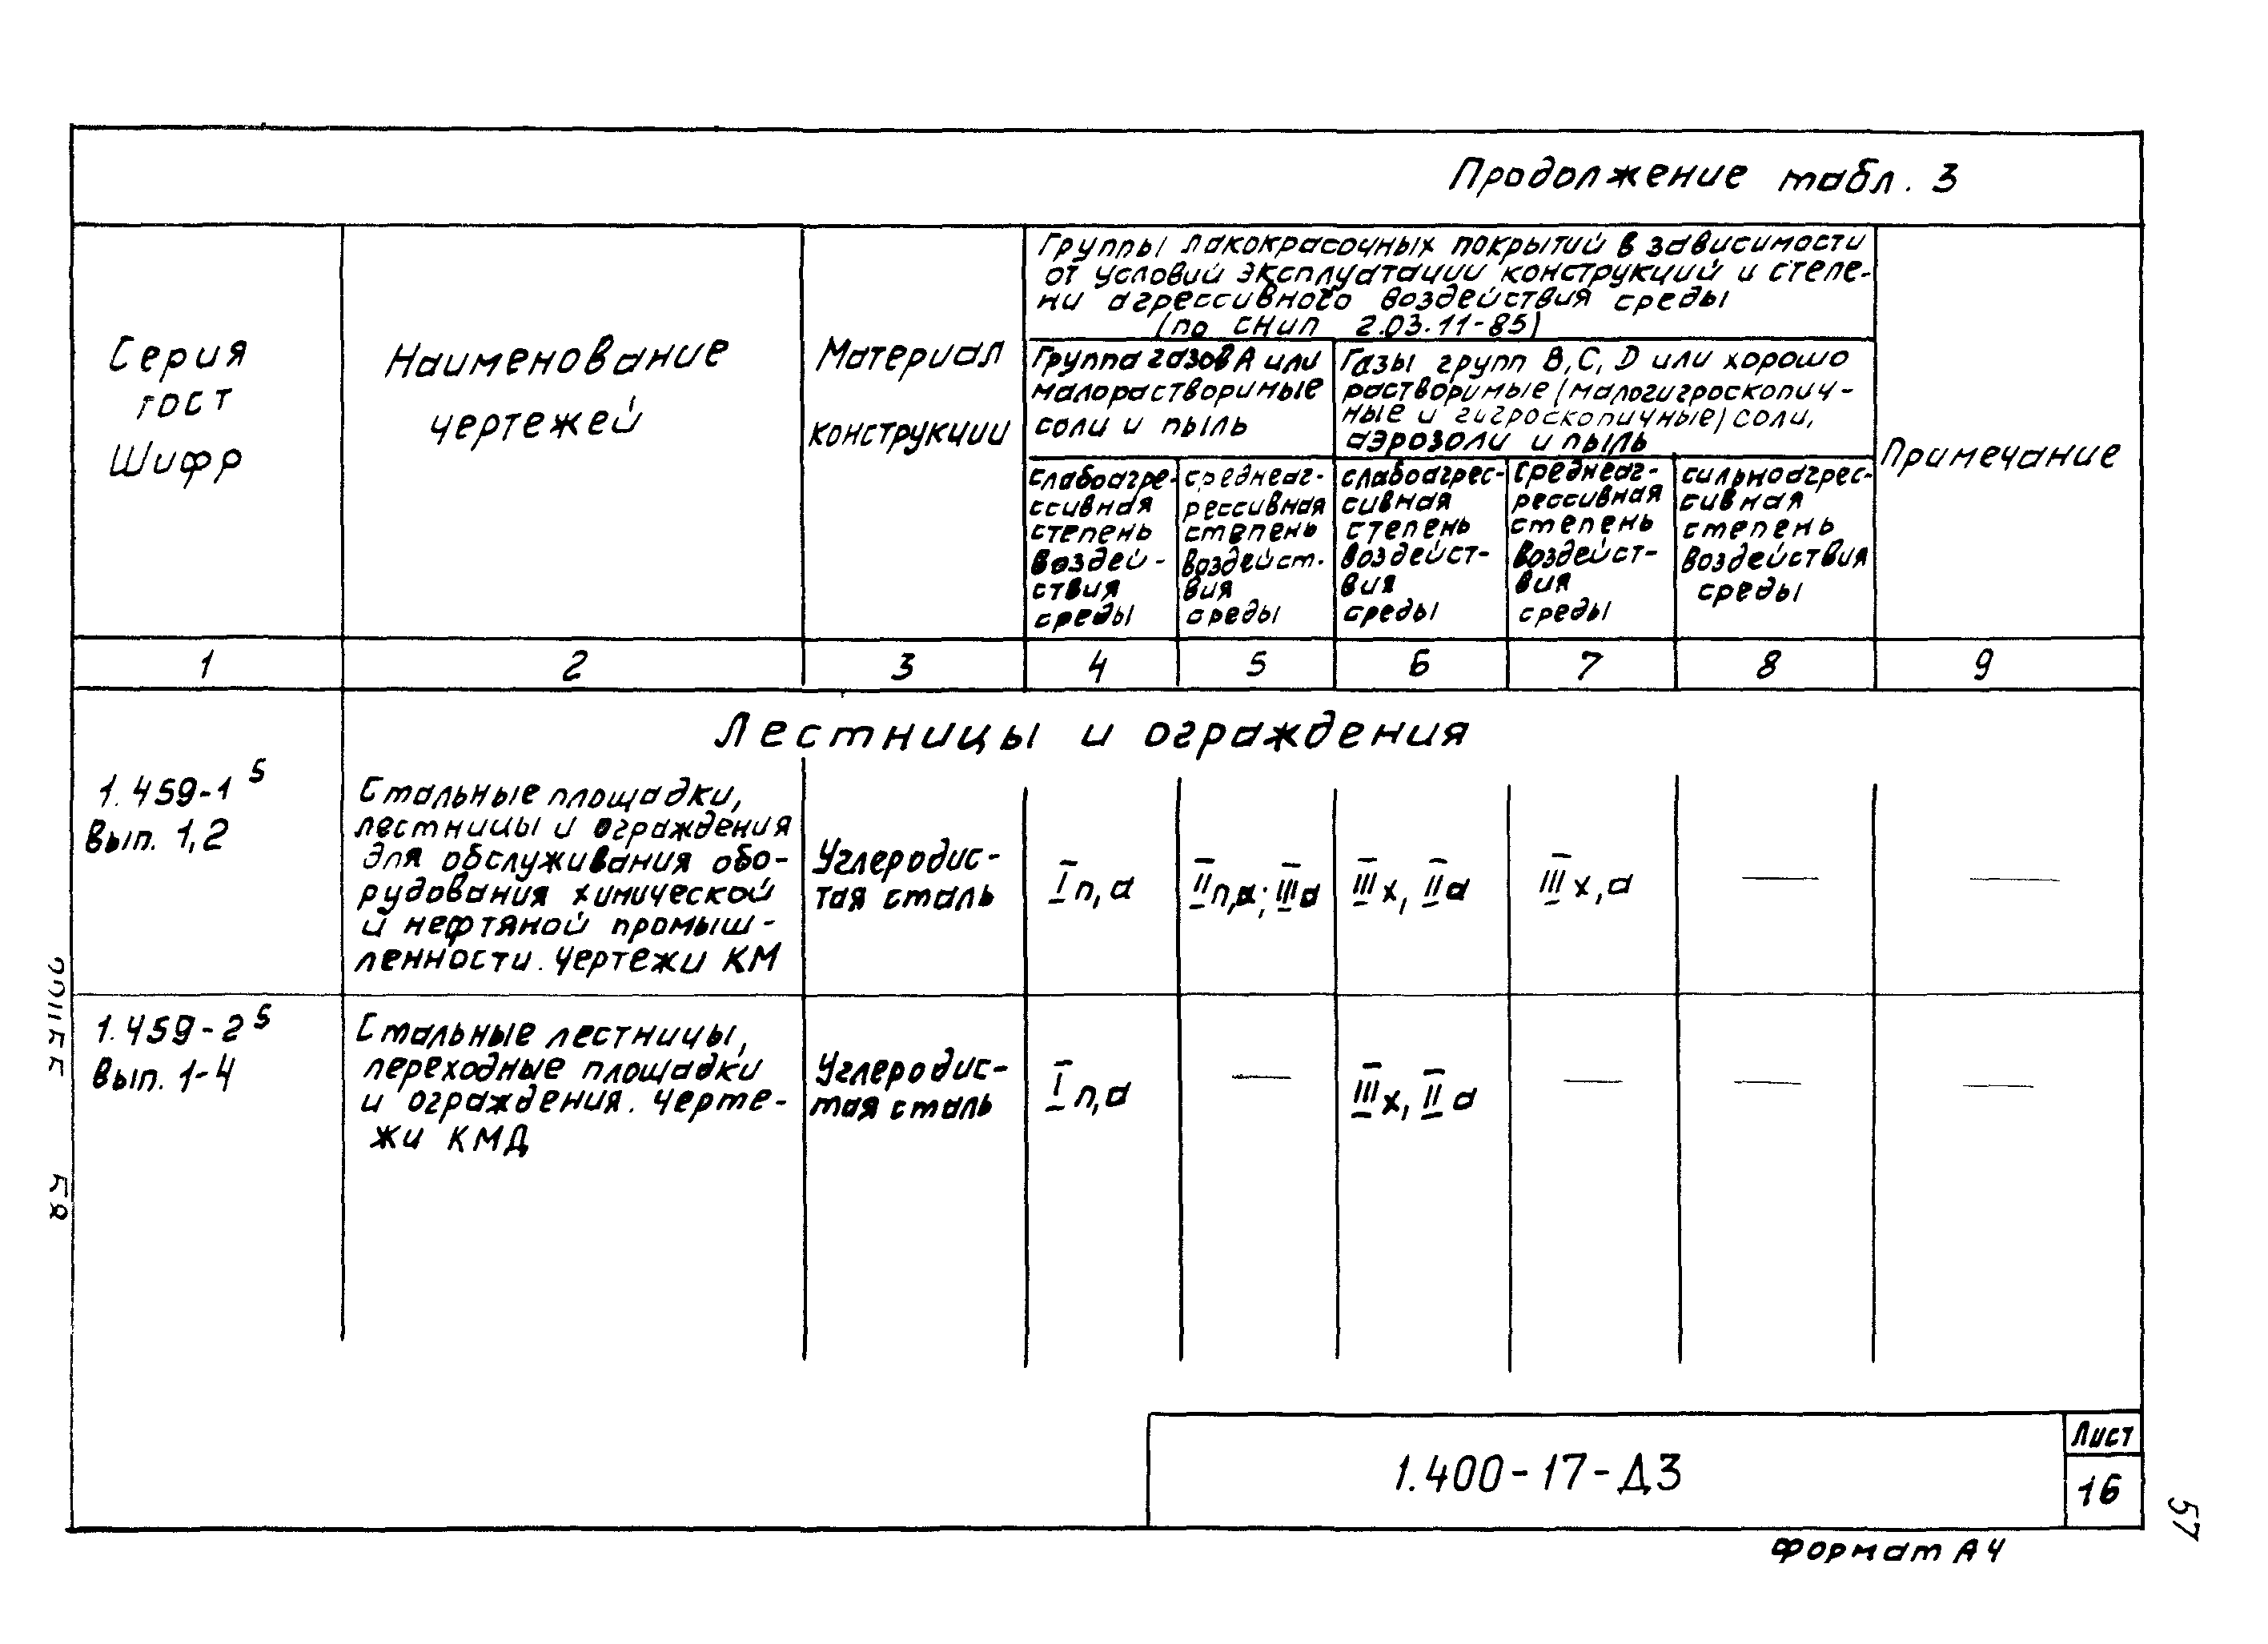 Продолжение табл. 3
Серия
гост
Шифр
Наименование
чертежей
Материал
конструкции
Группы лакокрасочных покрытий в зависимости
от условий эксплуатации конструкций и степе-
ни агрессивного воздействия среды
(по СНиП 2.03.11-85)
Группа газов А или
малорастворимые
соли и пыль
Газы групп В, С, D или хорошо
растворимые (малогигроскопич-
ные и гигроскопичные) соли,
аэрозоли и пыль
слабоагре-
ссивная
степень
воздей-
ствия
среды
среднеаг-
рессивная
степень
воздейст-
вия
среды
слабоагрес-
сивная
степень
воздейст-
вия
среды
среднеаг-
рессивная
степень
воздейст-
вия
среды
сильноагрес-
сивная
степень
воздействия
среды
Примечание
1 2 3 4 5 6 7 8 9
Лестницы и ограждения
1.459-1 5
Вып. 1,2
Стальные площадки,
лестницы и ограждения
для обслуживания обо-
рудования химической
и нефтяной промыш-
ленности. Чертежи КМ
Углеродис-
тая сталь
I п, а
II п, а; III а
III х, II а
III х, а
—
—
1.459-2 5
Вып. 1-4
Стальные лестницы,
переходные площадки
и ограждения. Черте-
жи КМД
Углеродис-
тая сталь
I п, а
—
III х, II а
—
—
—
1.400-17-Д3
Лист
16
57
Формат А4